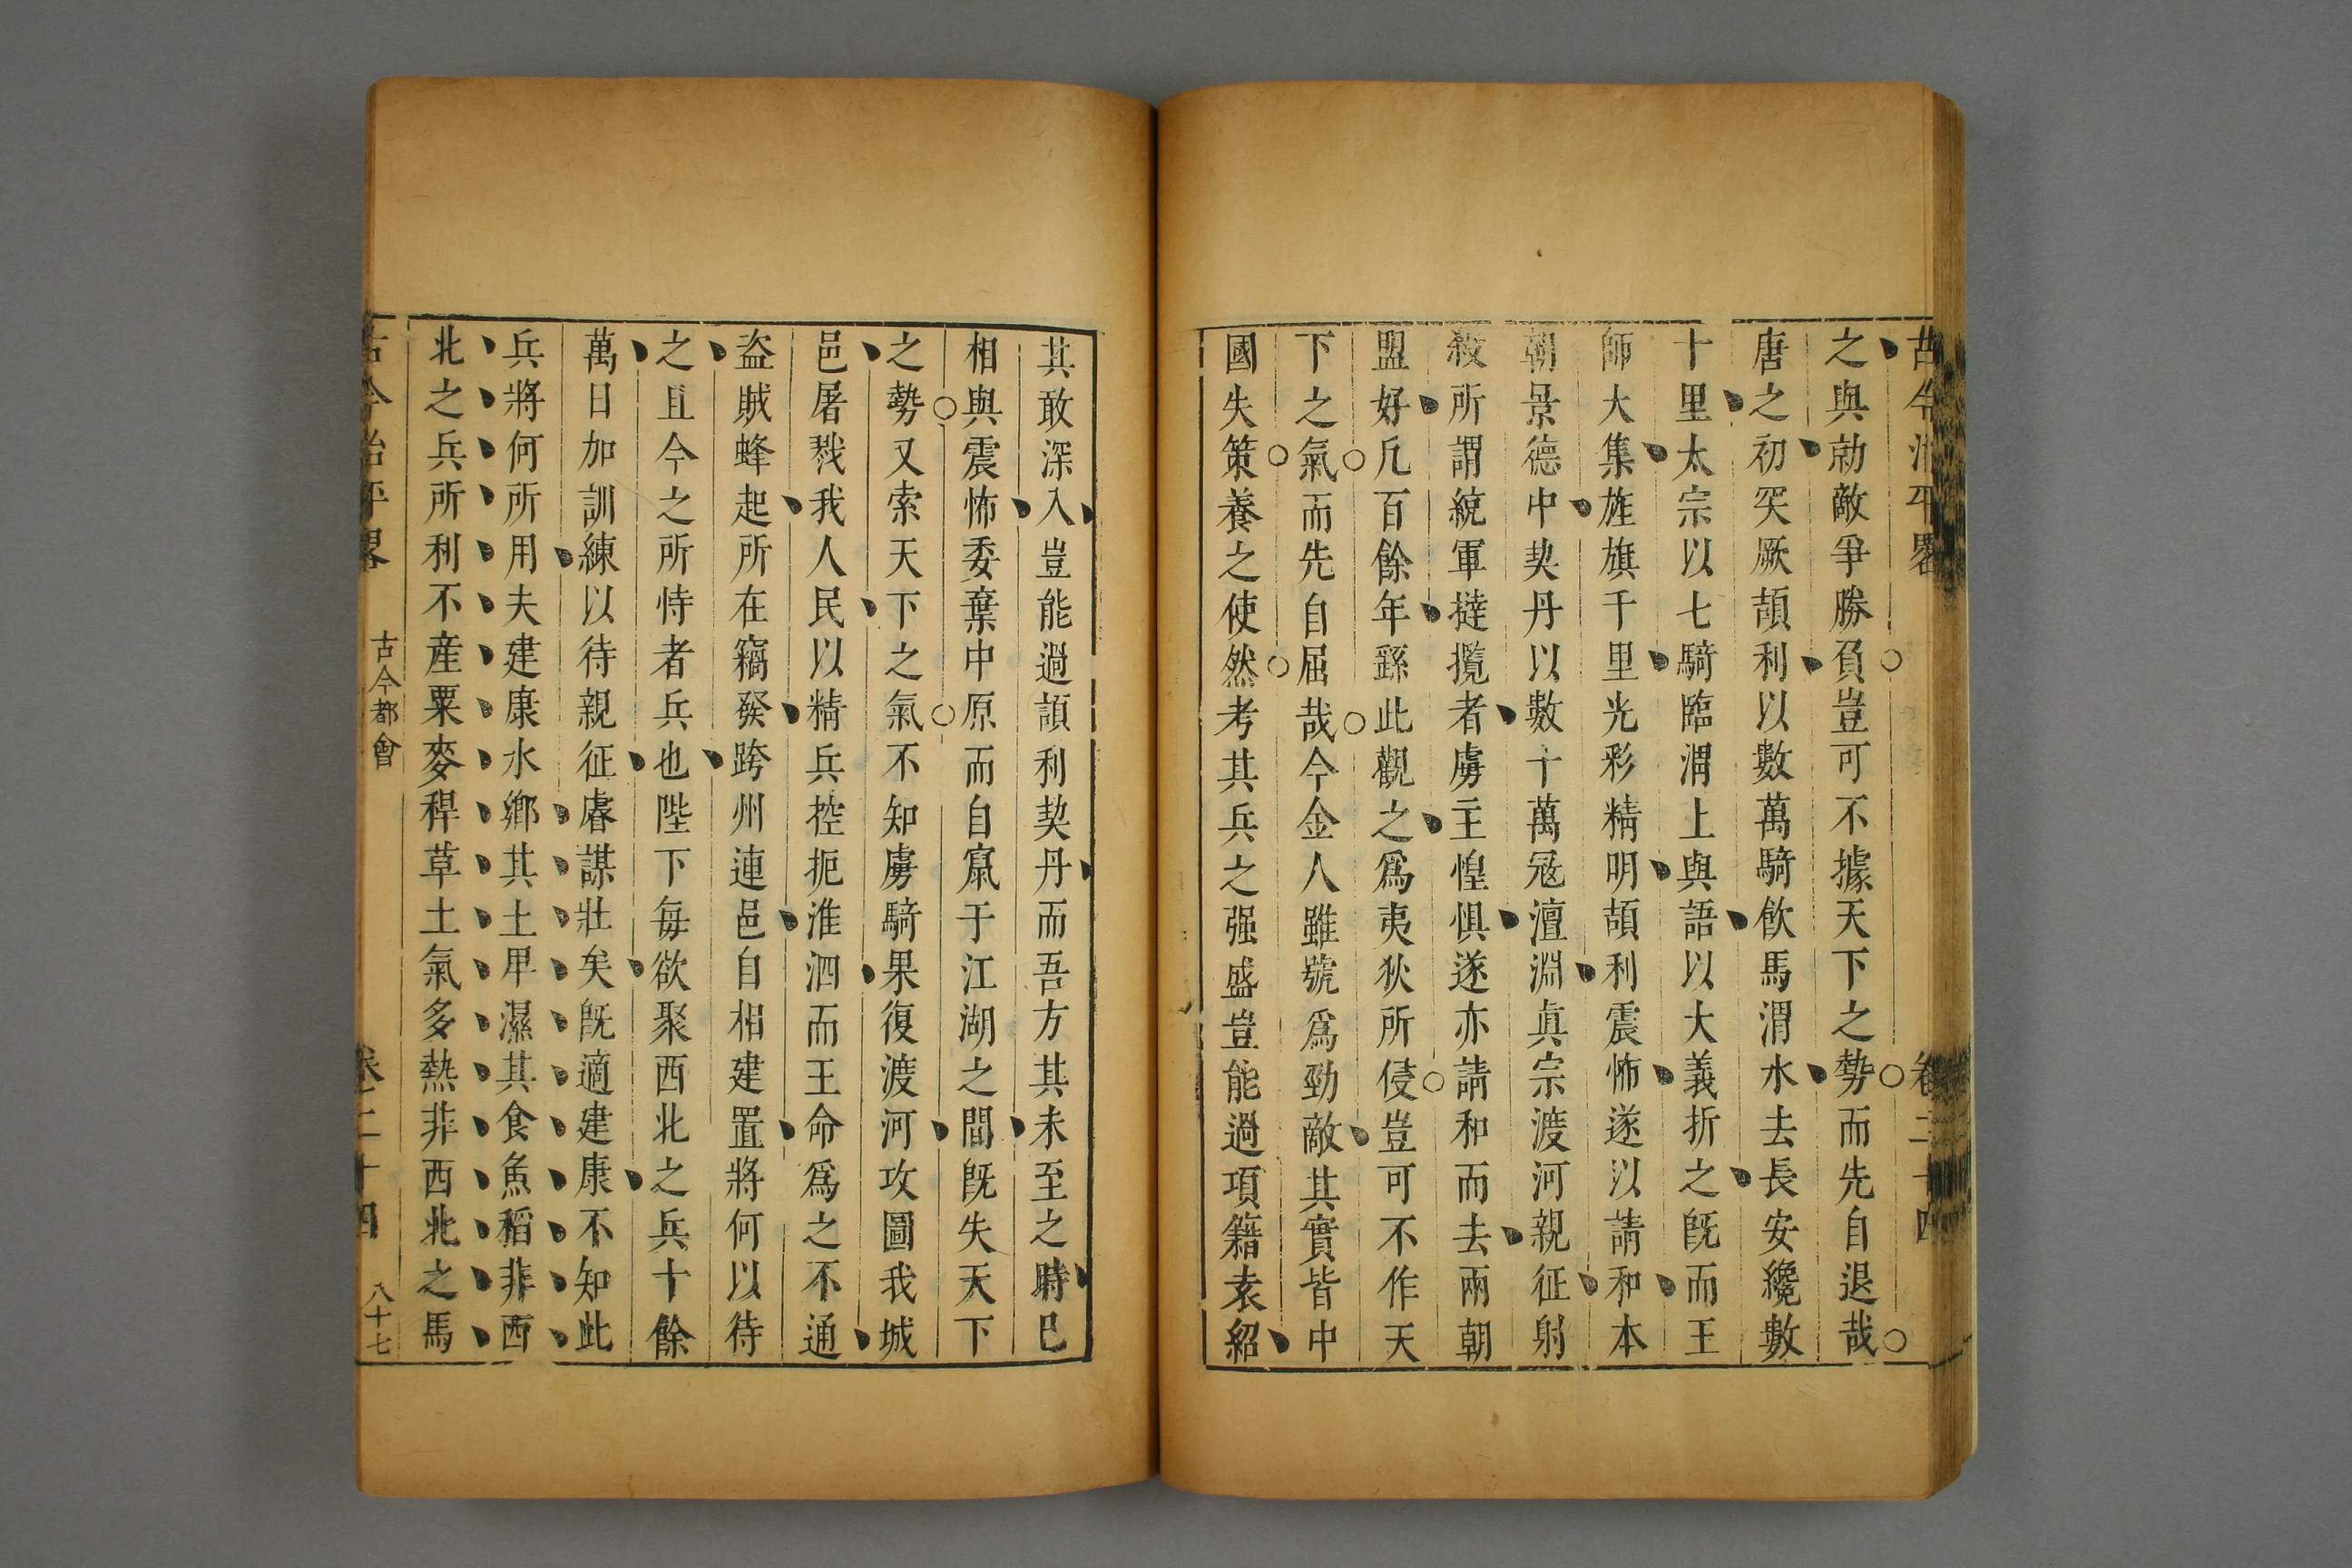 古今治平畧 卷二十四
之與勍敵爭勝負豈可不據天下之勢而先自退哉
唐之初突厥頡利以數萬騎飲馬渭水去長安纔數
十里太宗以七騎臨渭上與語以大義折之旣而王
師大集旌旗千里光彩精明頡利震怖遂以請和本
朝景德中契丹以數十萬冦澶淵眞宗渡河親征射
殺所謂統軍撻攬者虜主惶惧遂亦請和而去兩朝
盟好凢百餘年繇此觀之爲夷狄所侵豈可不作天
下之氣而先自屈哉今金人雖號爲勁敵其實皆中
國失策養之使然考其兵之强盛豈能過項籍袁紹
其敢深入豈能過頡利契丹而吾方其未至之時已
相與震怖委棄中原而自竄于江湖之間旣失天下
之勢又索天下之氣不知虜騎果復渡河攻圖我城
邑屠戮我人民以精兵控扼淮泗而王命爲之不通
盗賊蜂起所在竊發跨州連邑自相建置將何以待
之且今之所恃者兵也陛下每欲聚西北之兵十餘
萬日加訓練以待親征睿謀壯矣旣適建康不知此
兵將何所用夫建康水鄉其土卑濕其食魚稻非西
北之兵所利不産粟麥稈草土氣多熱非西北之馬
古今治平畧 古今都會 卷二十四 八十七